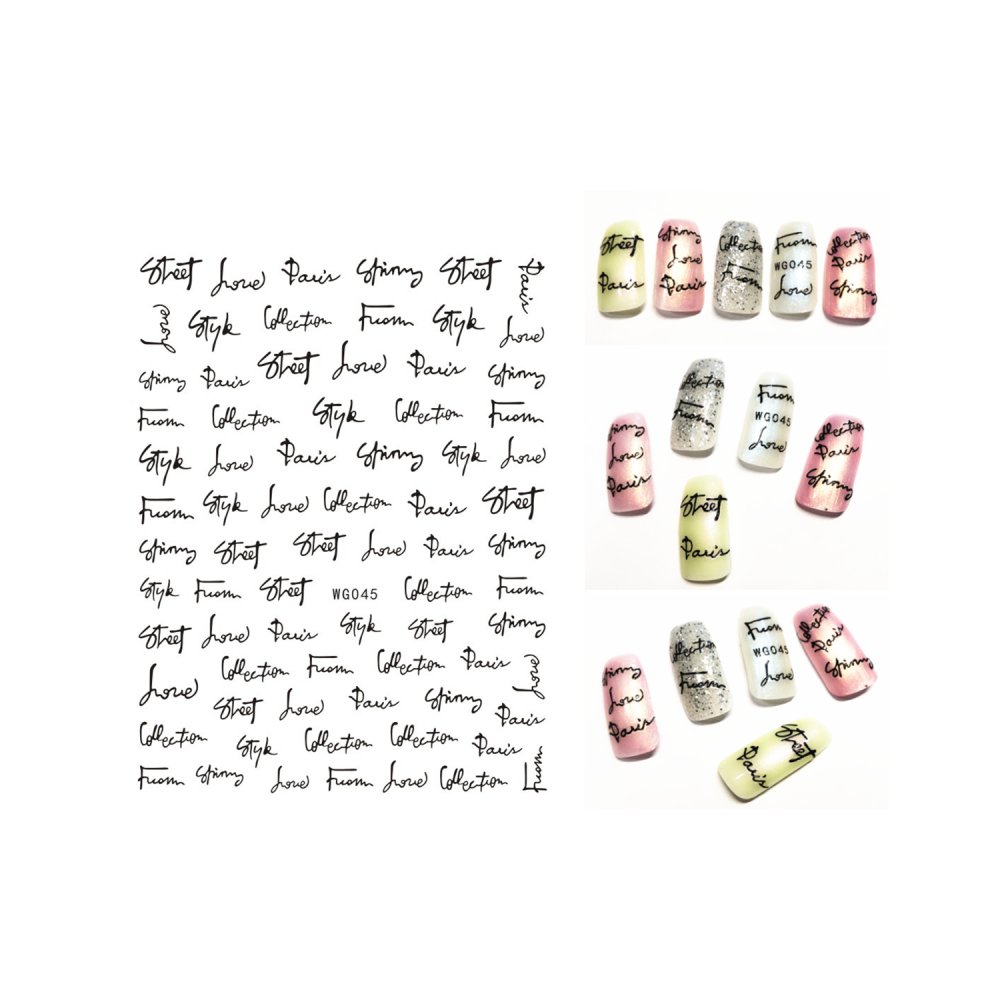 Street Love Paris Spring Street Paris
Love Style Collection From Style Love
Spring Paris Street Love Paris Spring
From Collection Style Collection From
Style Love Paris Spring Style Love
From Style Love Collection Paris Street
Spring Street Street Love Paris Spring
Style From Street WG045 Collection From
Street Love Paris Style Street Spring
Love Collection From Collection Paris Love
Street Love Paris Spring Paris
Collection Style Collection Collection Paris
From Spring Love From Love Collection From
Street
Paris
Spring
Love
Paris
Collection
From
From
WG045
Love
Collection
Paris
Spring
Spring
Love
Paris
Collection
From
From
WG045
Love
Collection
Paris
Spring
Street
Paris
Spring
Love
Paris
Collection
From
From
WG045
Love
Collection
Paris
Spring
Street
Paris